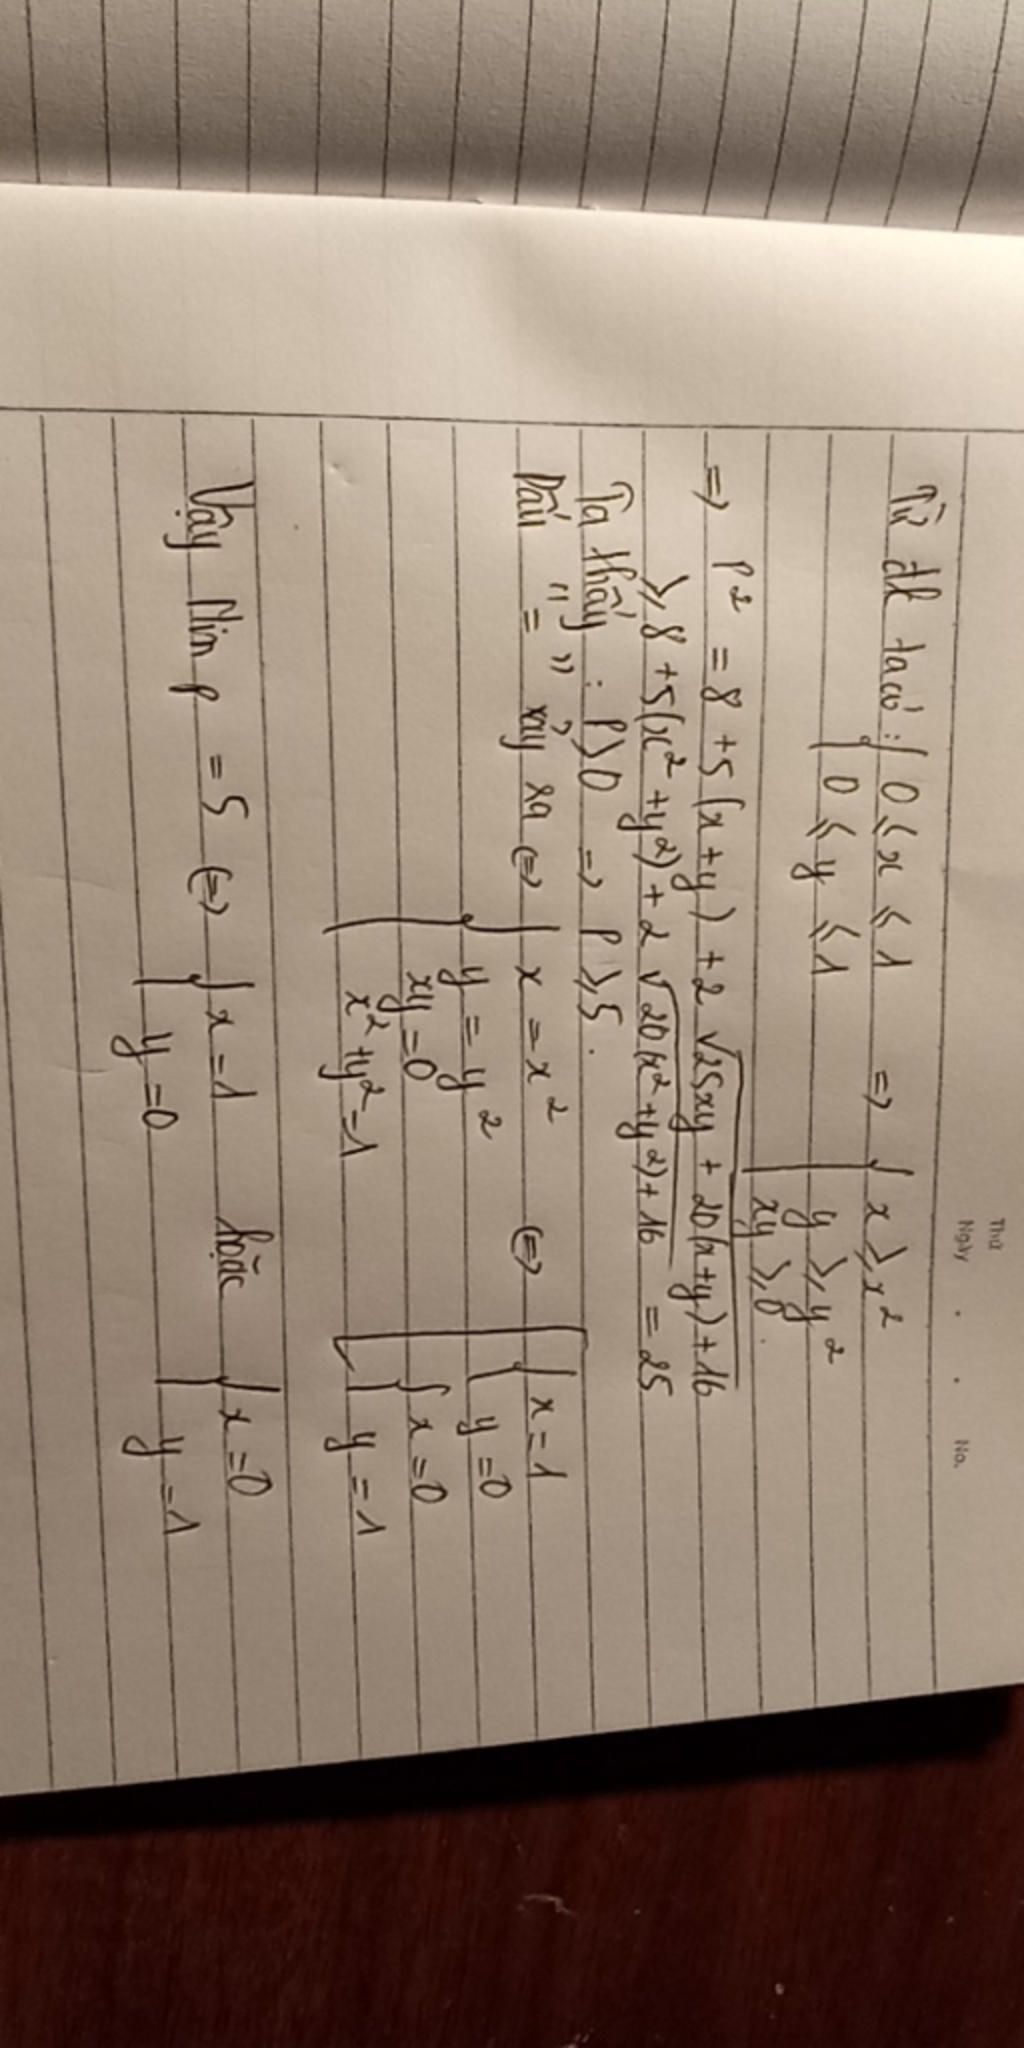 Thứ
Ngày . . No.
Từ đk ta có: { 0 ≤ x ≤ 1 => { x ≥ x²
0 ≤ y ≤ 1 y ≥ y²
xy ≥ 0.
=> P² = 8 + 5(x+y) + 2√25xy + 20(x+y) + 16
≥ 8 + 5(x² + y²) + 2√20(x² + y²) + 16 = 25
Ta thấy: P > 0 => P ≥ 5.
Dấu "=" xảy ra <=> { x = x² <=> [ { x = 1
y = y² y = 0
xy = 0 { x = 0
x² + y² = 1 y = 1
Vậy Min P = 5 <=> { x = 1 hoặc { x = 0
y = 0 y = 1